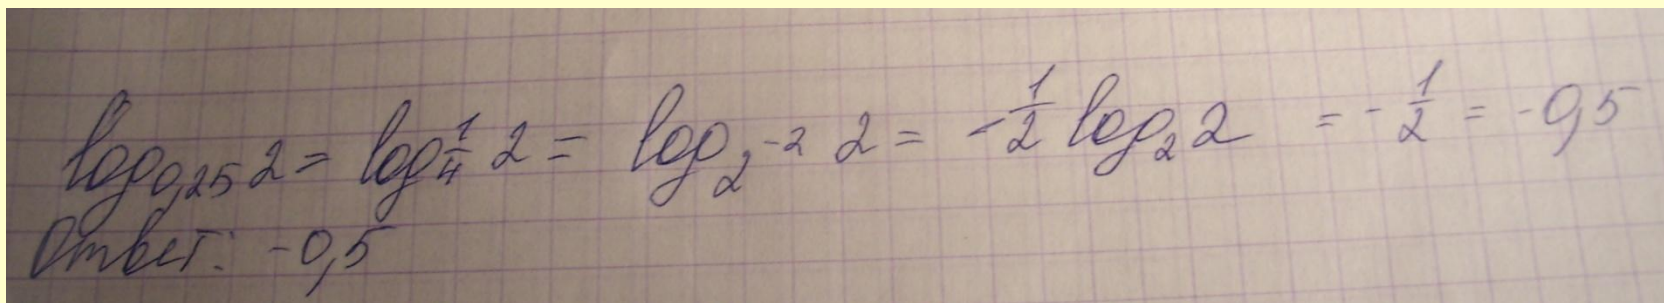 log₀,₂₅ 2 = log 1/4 2 = log₂⁻² 2 = -1/2 log₂ 2 = - 1/2 = -0,5
Ответ: -0,5